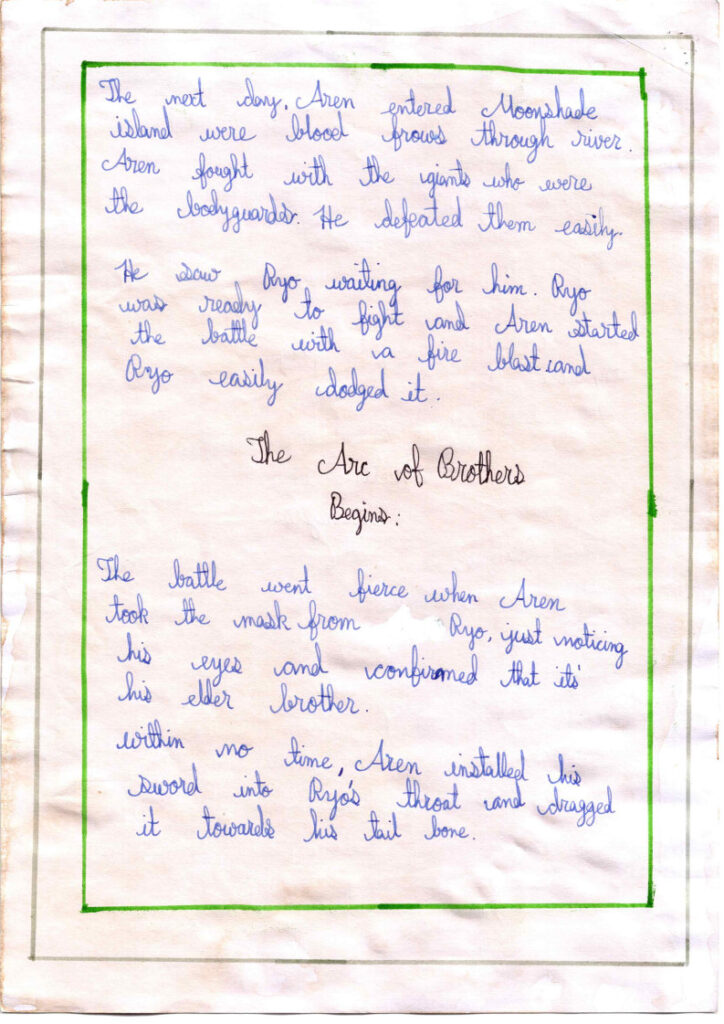 The next day, Aren entered Moonshade
island were blood frows through river.
Aren fought with the giants who were
the bodyguards. He defeated them easily.
He saw Ryo waiting for him. Ryo
was ready to fight and Aren started
the battle with a fire blast and
Ryo easily dodged it.
The Arc of Brothers
Begins:
The battle went fierce when Aren
took the mask from Ryo, just noticing
his eyes and confirmed that its'
his elder brother.
within no time, Aren installed his
sword into Ryo's throat and dragged
it towards his tail bone.